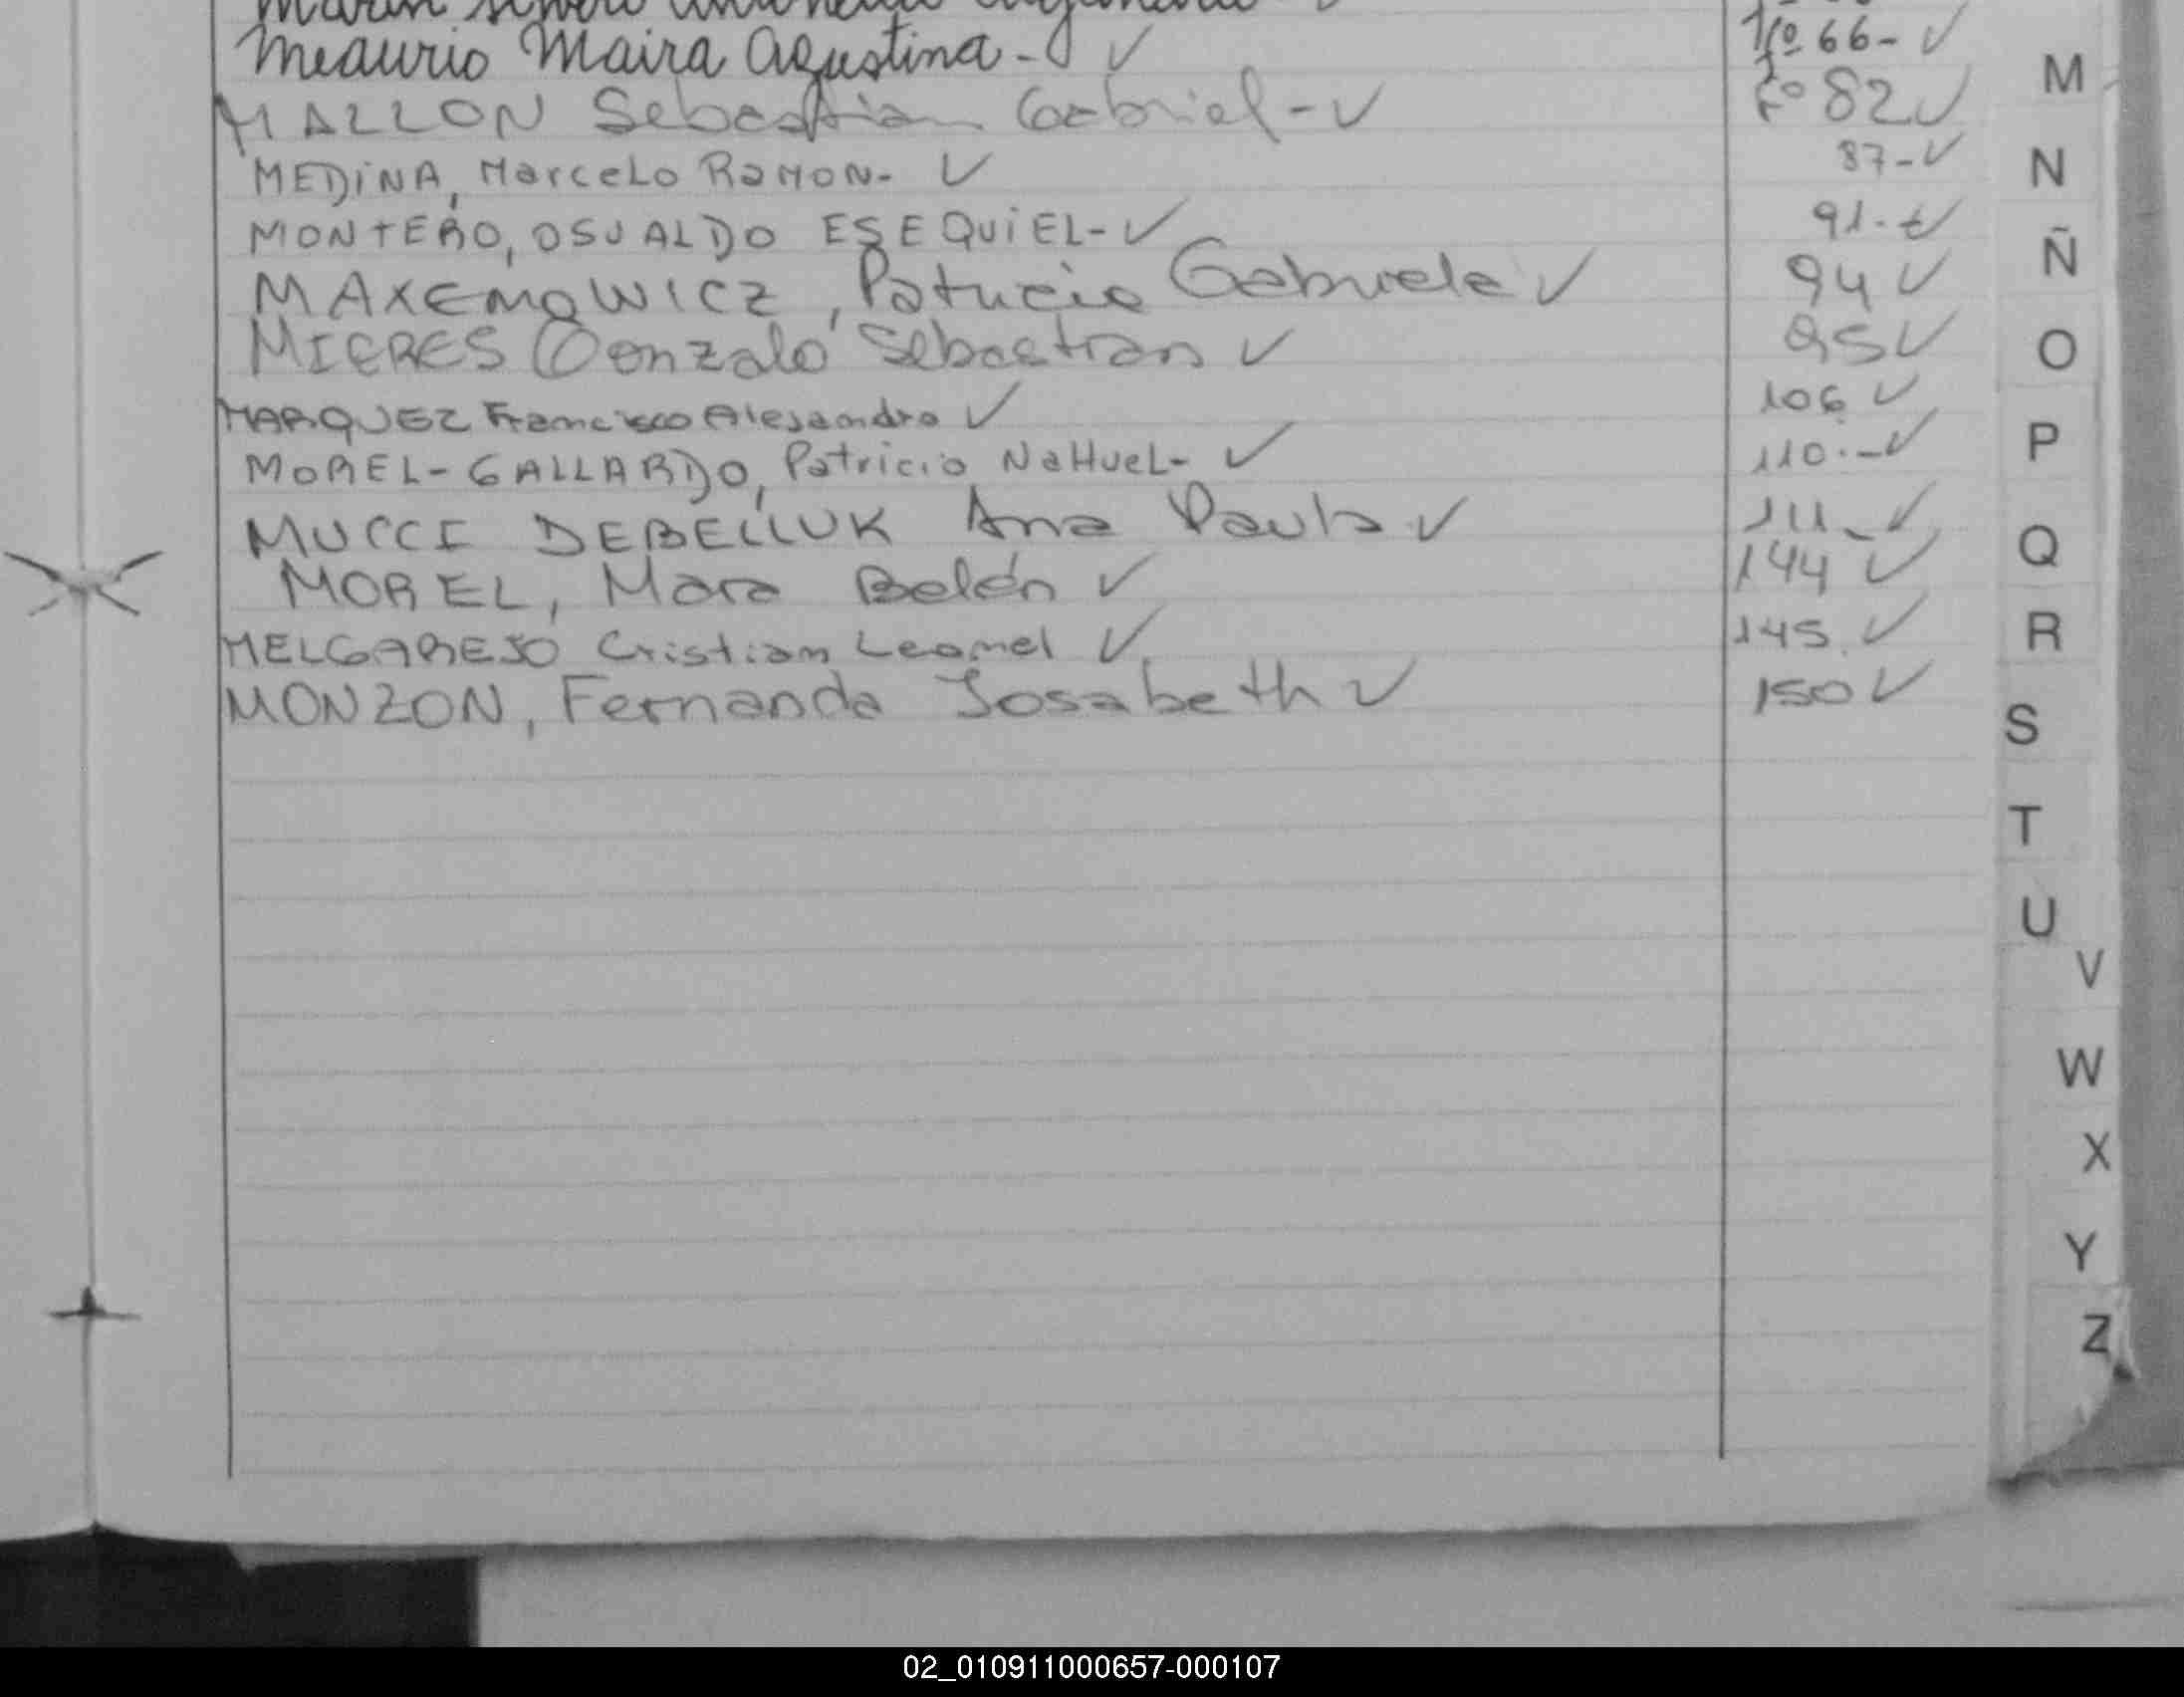 Medurio Maira Agustina - ✓ Fº 66- ✓
MALLON Sebastian Gabriel - ✓ Fº 82 ✓
MEDINA, Marcelo RaMON- ✓ 87-✓
MONTERO, OSUALDO ESEQUIEL- ✓ 91.- ✓
MAXEMOWICZ, Patricia Gabriela ✓ 94 ✓
MIERES Gonzalo Sebastian ✓ 95 ✓
MARQUEZ Francisco Alejandro ✓ 106 ✓
MOREL-GALLARDO, Patricio NaHueL- ✓ 110.- ✓
MUCCI DEBELLUK Ana Paula ✓ 111- ✓
MOREL, Mara Belén ✓ 144 ✓
MELGAREJO Cristian Leonel ✓ 145. ✓
MONZON, Fernanda Josabeth ✓ 150 ✓
M
N
Ñ
O
P
Q
R
S
T
U
V
W
X
Y
Z
02_010911000657-000107